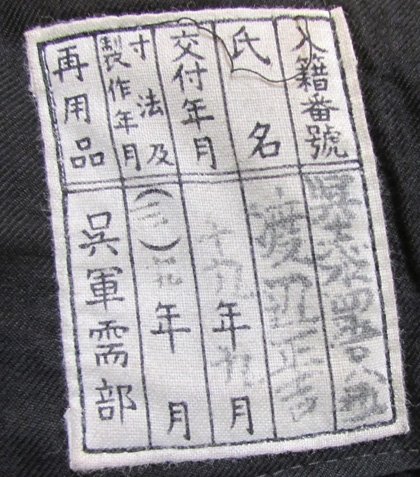 入籍番號
氏名 渡辺正吉
交付年月 十九年九月
寸法及製作年月 ( ) 年 月
再用品 呉軍需部